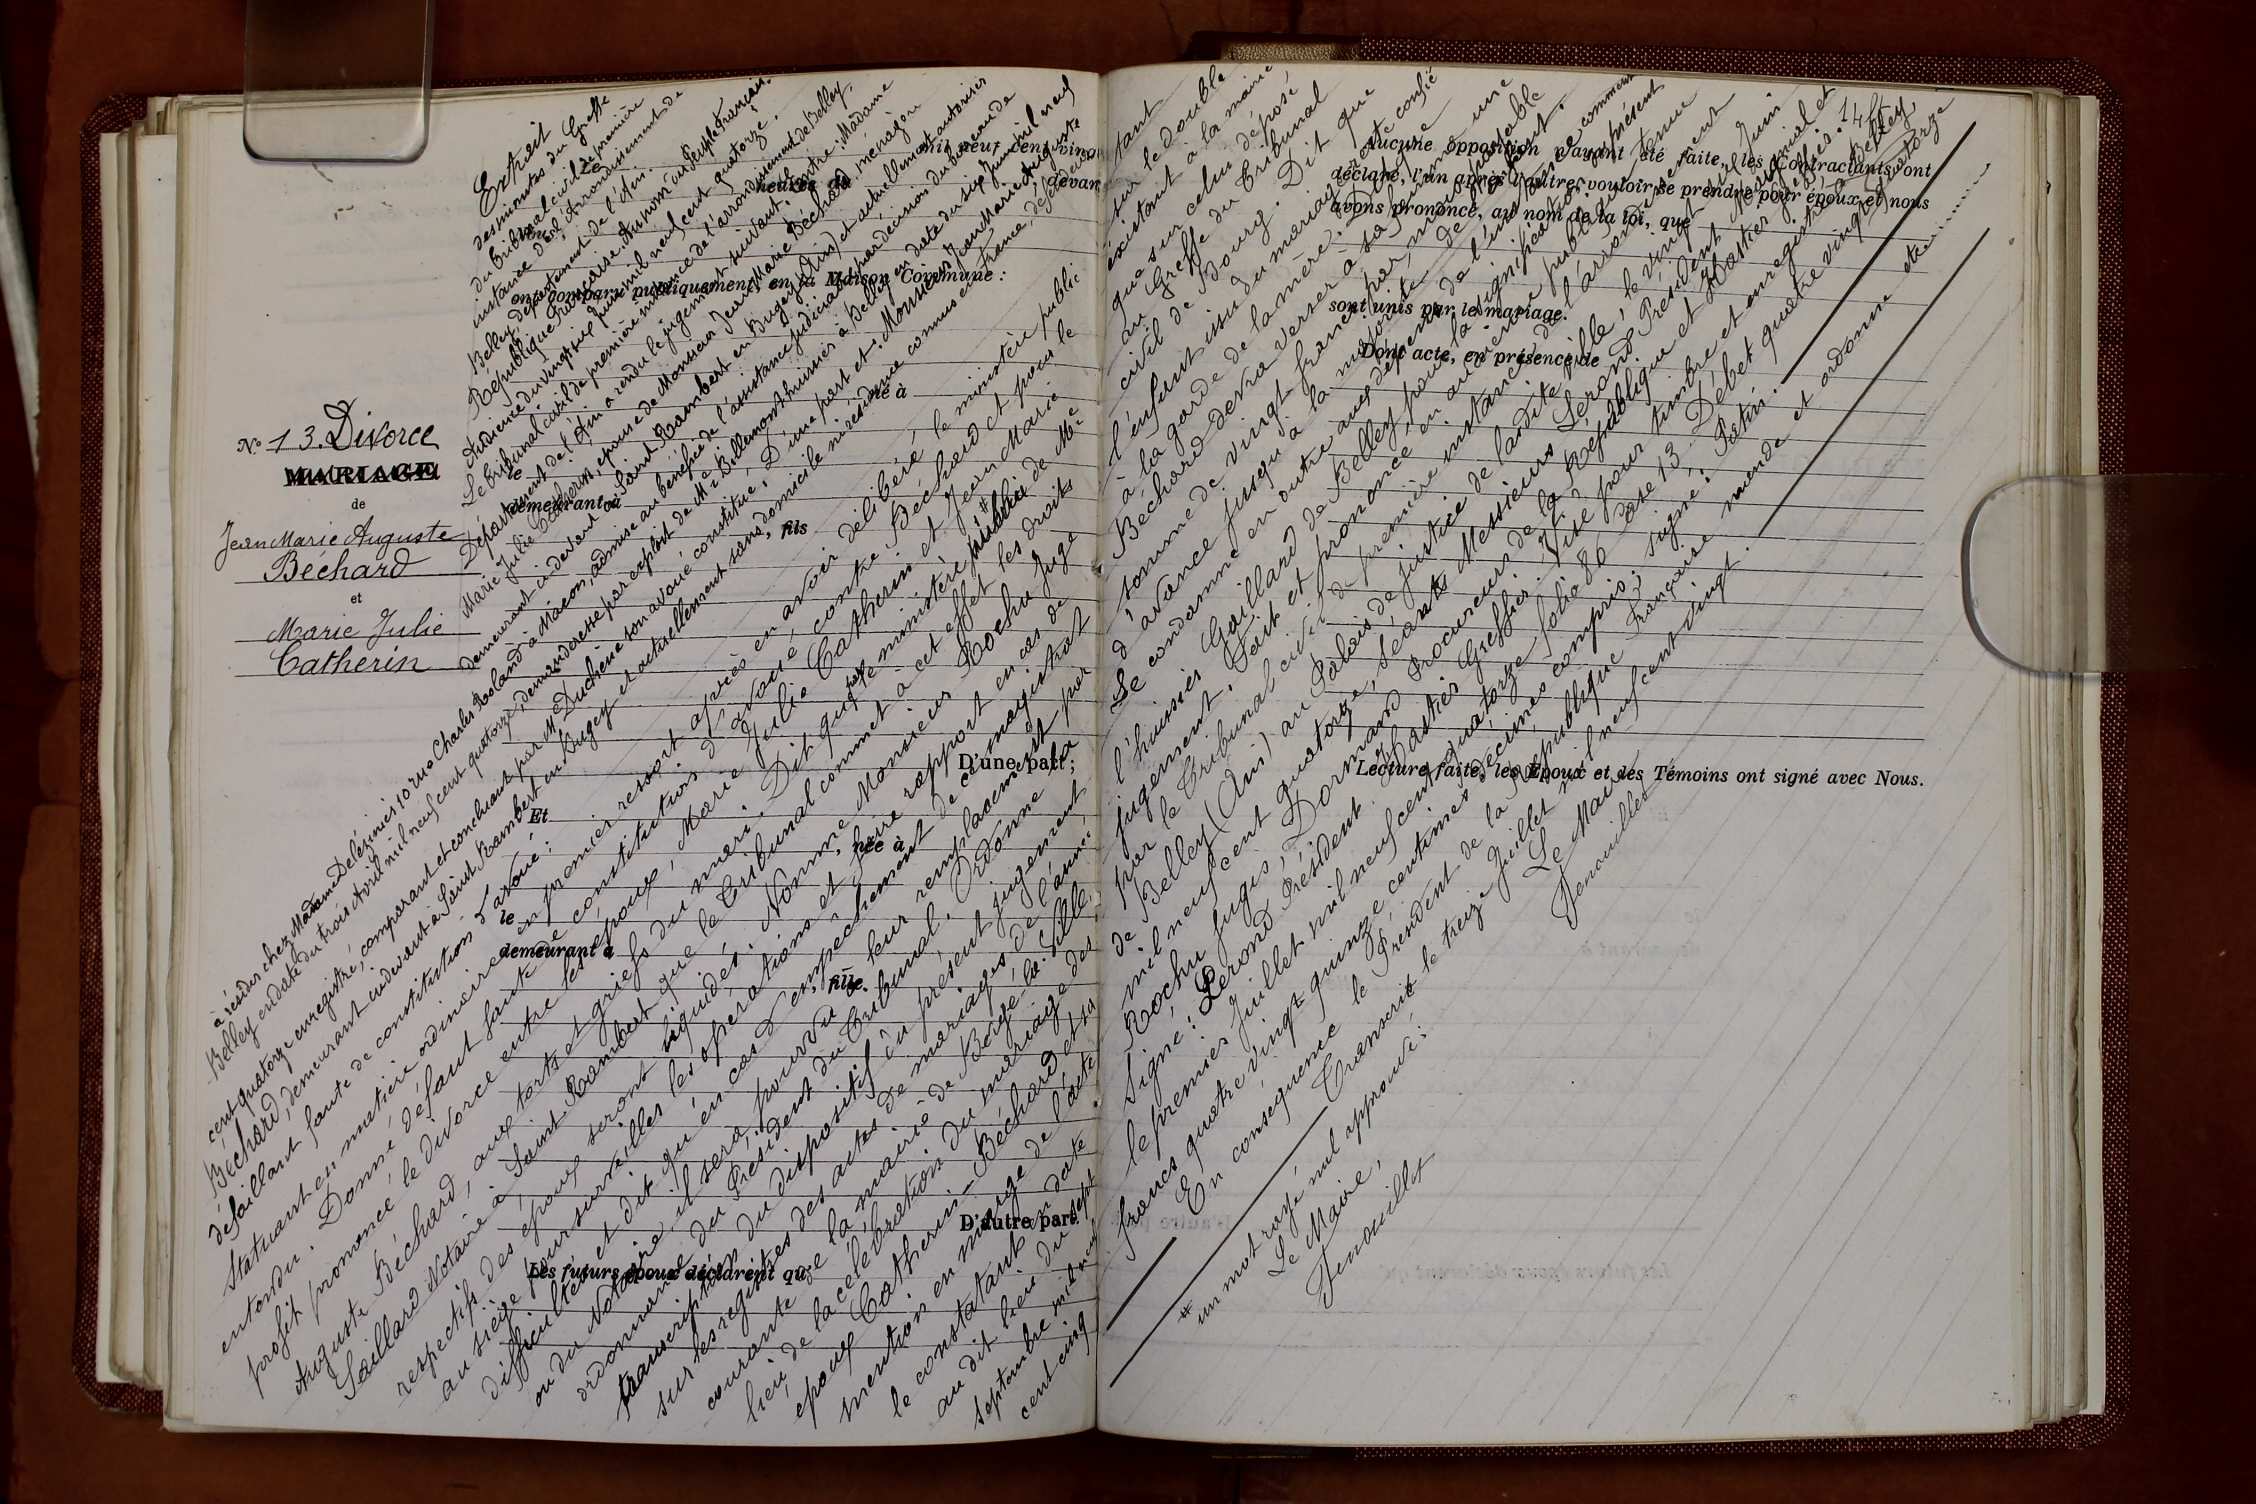 N° 13. Divorce
MARIAGE
de
Jean Marie Auguste
Béchard
et
Marie Julie
Catherin
Extrait
des minutes du Greffe
du Tribunal civil de première
instance de l'Arrondissement de
Belley département de l'Ain.
République Française. Au nom du Peuple Français.
Audience du vingt six Juin mil neuf cent quatorze.
Le Tribunal civil de première instance de l'arrondissement de Belley,
Département de l'Ain a rendu le jugement suivant: Entre: Madame
Marie Julie Catherin, épouse de Monsieur Jean Marie Béchard, ménagère
demeurant ci-devant à Saint Rambert en Bugey (Ain) et actuellement autorisée
à résider chez Madame Delézinier 10 rue Charles Rolland à Macon, admise au bénéfice de l'assistance judiciaire par décision du bureau de
Belley en date du trois Avril mil neuf cent quatorze, demanderesse par exploit de Me Billemont huissier à Belley en date du six Juin mil neuf
cent quatorze enregistré, comparant et concluant par Me Duchêne son avoué constitué, D'une part et: Monsieur Jean Marie Auguste
Béchard, demeurant ci-devant à Saint Rambert en Bugey et actuellement sans domicile ni résidence connus en France, défendeur
défaillant faute de constitution d'avoué:
Statuant en matière ordinaire en premier ressort après en avoir délibéré le ministère public
entendu. Donne défaut faute de constitution d'avoué contre Béchard et pour le
profit prononce le divorce entre les époux, Marie Julie Catherin et Jean Marie
Auguste Béchard, aux torts et griefs du mari. Dit que par le ministère de Me
Gaillard Notaire à Saint Rambert que le Tribunal commet à cet effet les droits
respectifs des époux seront liquidés. Nomme Monsieur Rochu Juge
au siège pour surveiller les opérations et faire rapport en cas de
difficultés et dit qu'en cas d'empêchement de ce magistrat
ou du Notaire il sera pourvu à leur remplacement par
ordonnance du Président du Tribunal. Ordonne la
transcription du dispositif du présent jugement
sur les registres des actes de mariages de l'année
courante de la mairie de Borgé-la-Ville,
lieu de la célébration du mariage des
époux Catherin-Béchard et sa
mention en marge de l'acte
le constatant en date
au dit lieu du sept
septembre mil neuf
cent cinq
mil neuf cent vingt
heures du
devant
ont comparu publiquement, en la Maison Commune:
né à
le
demeurant à
, fils
D'une part;
Et
, née à
le
demeurant à
, fille
D'autre part.
Les futurs époux déclarent qu
tant
sur le double
existant à la mairie
que sur celui déposé
au Greffe du Tribunal
civil de Bourg. Dit que
l'enfant issu du mariage sera confié
à la garde de la mère. Dit que
Béchard devra verser à sa femme une
somme de vingt francs par mois payable
d'avance jusqu'à la majorité de l'enfant.
Le condamne en outre aux dépens
l'huissier Gaillard de Belley, pour la signification du présent
jugement. Fait et prononcé en audience publique tenue
par le Tribunal civil de première instance de l'arrondissement
de Belley (Ain) au Palais de Justice de ladite ville, le vingt six Juin
mil neuf cent quatorze, Séants Messieurs Lerond Président
Rochu Juges, Dormand Procureur de la République et Hastier
Signé: Lerond Président. Hastier Greffier. Visé pour timbre et enregistré à Belley,
le premier Juillet mil neuf cent quatorze folio 86 case 13. Débet quatre vingt quatorze
francs quatre vingt quinze centimes décimes compris, signé: Patin.
En conséquence le Président de la République Française mande et ordonne etc......
Transcrit le treize Juillet mil neuf cent vingt.
Le Maire
Fenouillet
un mot rayé nul approuvé:
Le Maire,
Fenouillet
Aucune opposition n'ayant été faite, les Contractants ont
déclaré, l'un après l'autre, vouloir se prendre pour époux et nous
avons prononcé, au nom de la loi, que
sont unis par le mariage.
Dont acte, en présence de
Lecture faite, les Époux et les Témoins ont signé avec Nous.